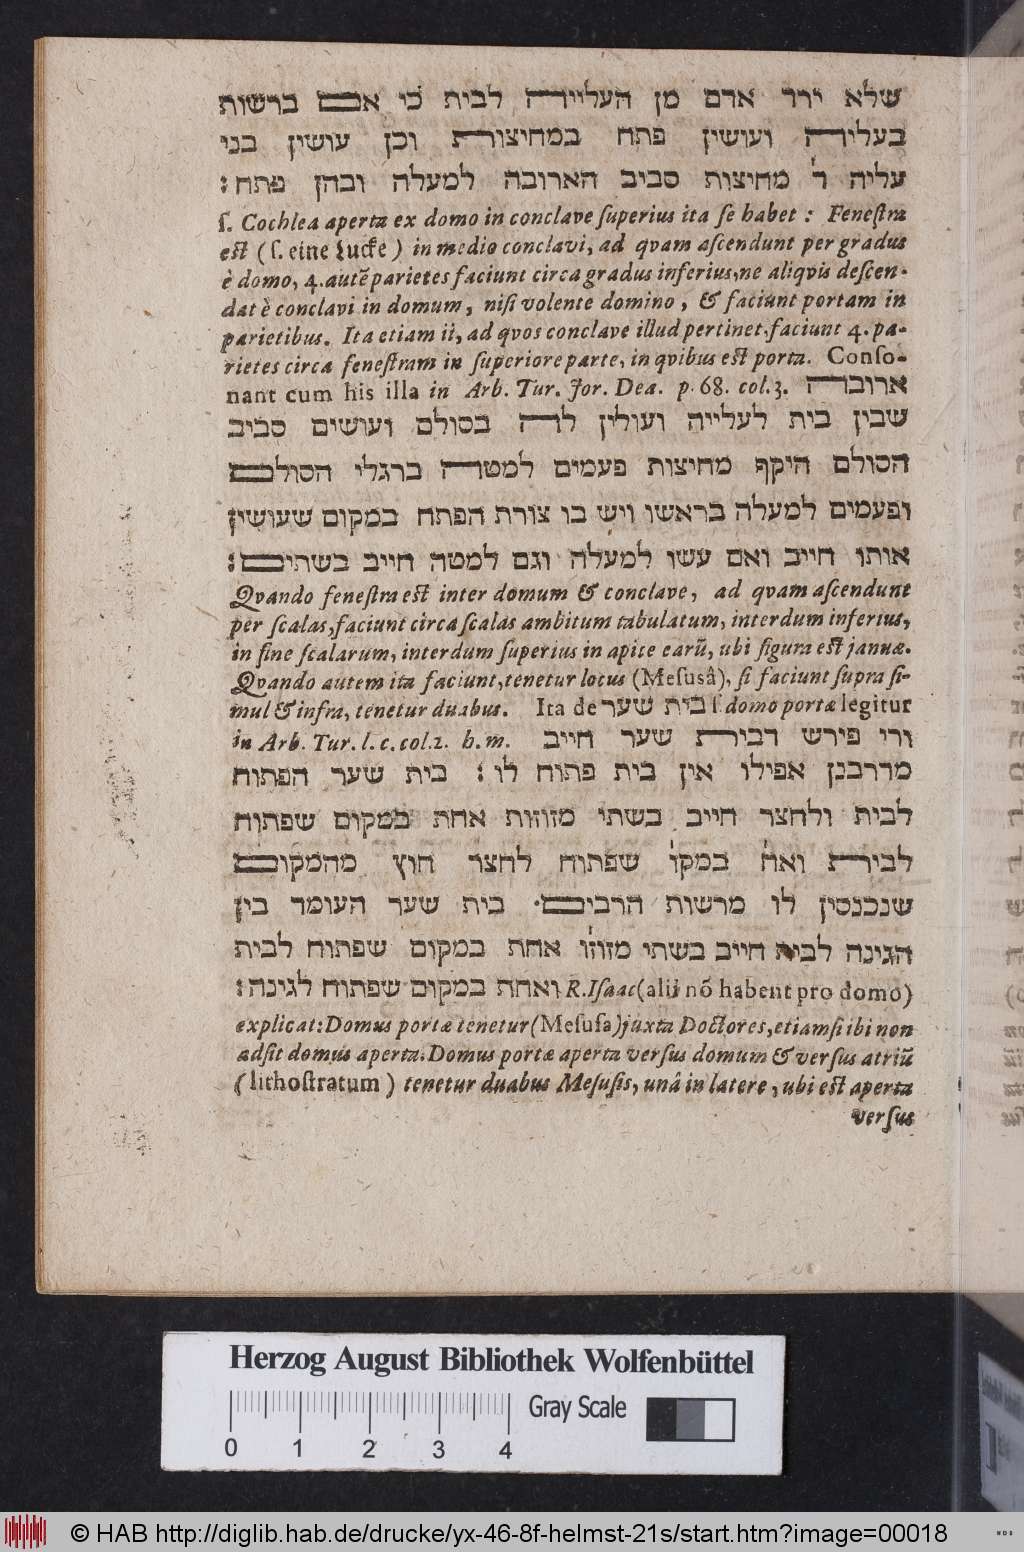 שלא ירד אדם מן העלייה לבית כי אם ברשות
בעליה ועושין פתח במחיצות וכן עושין בני
עליה ד' מחיצות סביב הארובה למעלה ובהן פתח:
ſ. Cochlea aperta ex domo in conclave ſuperius ita ſe habet: Feneſtra
eſt (ſ. eine Lucke) in medio conclavi, ad qvam aſcendunt per gradus
è domo, 4. autē parietes faciunt circa gradus inferius, ne aliqvis deſcen-
dat è conclavi in domum, niſi volente domino, & faciunt portam in
parietibus. Ita etiam ii, ad qvos conclave illud pertinet, faciunt 4. pa-
rietes circa feneſtram in ſuperiore parte, in qvibus eſt porta. Conſo-
nant cum his illa in Arb. Tur. Jor. Dea. p. 68. col. 3. ארובה
שבין בית לעלייה ועולין לה בסולם ועושים סביב
הסולם היקף מחיצות פעמים למטה ברגלי הסולם
ופעמים למעלה בראשו ויש בו צורת הפתח במקום שעושין
אותו חייב ואם עשו למעלה וגם למטה חייב בשתים:
Qvando feneſtra eſt inter domum & conclave, ad qvam aſcendunt
per ſcalas, faciunt circa ſcalas ambitum tabulatum, interdum inferius,
in fine ſcalarum, interdum ſuperius in apice earū, ubi figura eſt januæ.
Qvando autem ita faciunt, tenetur locus (Meſusâ), ſi faciunt ſupra ſi-
mul & infra, tenetur duabus. Ita de בית שער ſ domo portæ legitur
in Arb. Tur. l. c. col. 2. h. m. ורי פירש דבית שער חייב
מדרבנן אפילו אין בית פתוח לו: בית שער הפתוח
לבית ולחצר חייב בשתי מזוזות אחת במקום שפתוח
לבית ואח' במקו' שפתוח לחצר חוץ מהמקום
שנכנסין לו מרשות הרבים. בית שער העומד בין
הגינה לבית חייב בשתי מזוזו' אחת במקום שפתוח לבית
ואחת במקום שפתוח לגינה: R. Iſaac (alii nō habent pro domo)
explicat: Domus portæ tenetur (Meſuſa) juxta Doctores, etiamſi ibi non
adſit domus aperta. Domus portæ aperta verſus domum & verſus atriū
(lithoſtratum) tenetur duabus Meſuſis, unâ in latere, ubi eſt aperta
verſus
Herzog August Bibliothek Wolfenbüttel
Gray Scale
0 1 2 3 4
© HAB http://diglib.hab.de/drucke/yx-46-8f-helmst-21s/start.htm?image=00018